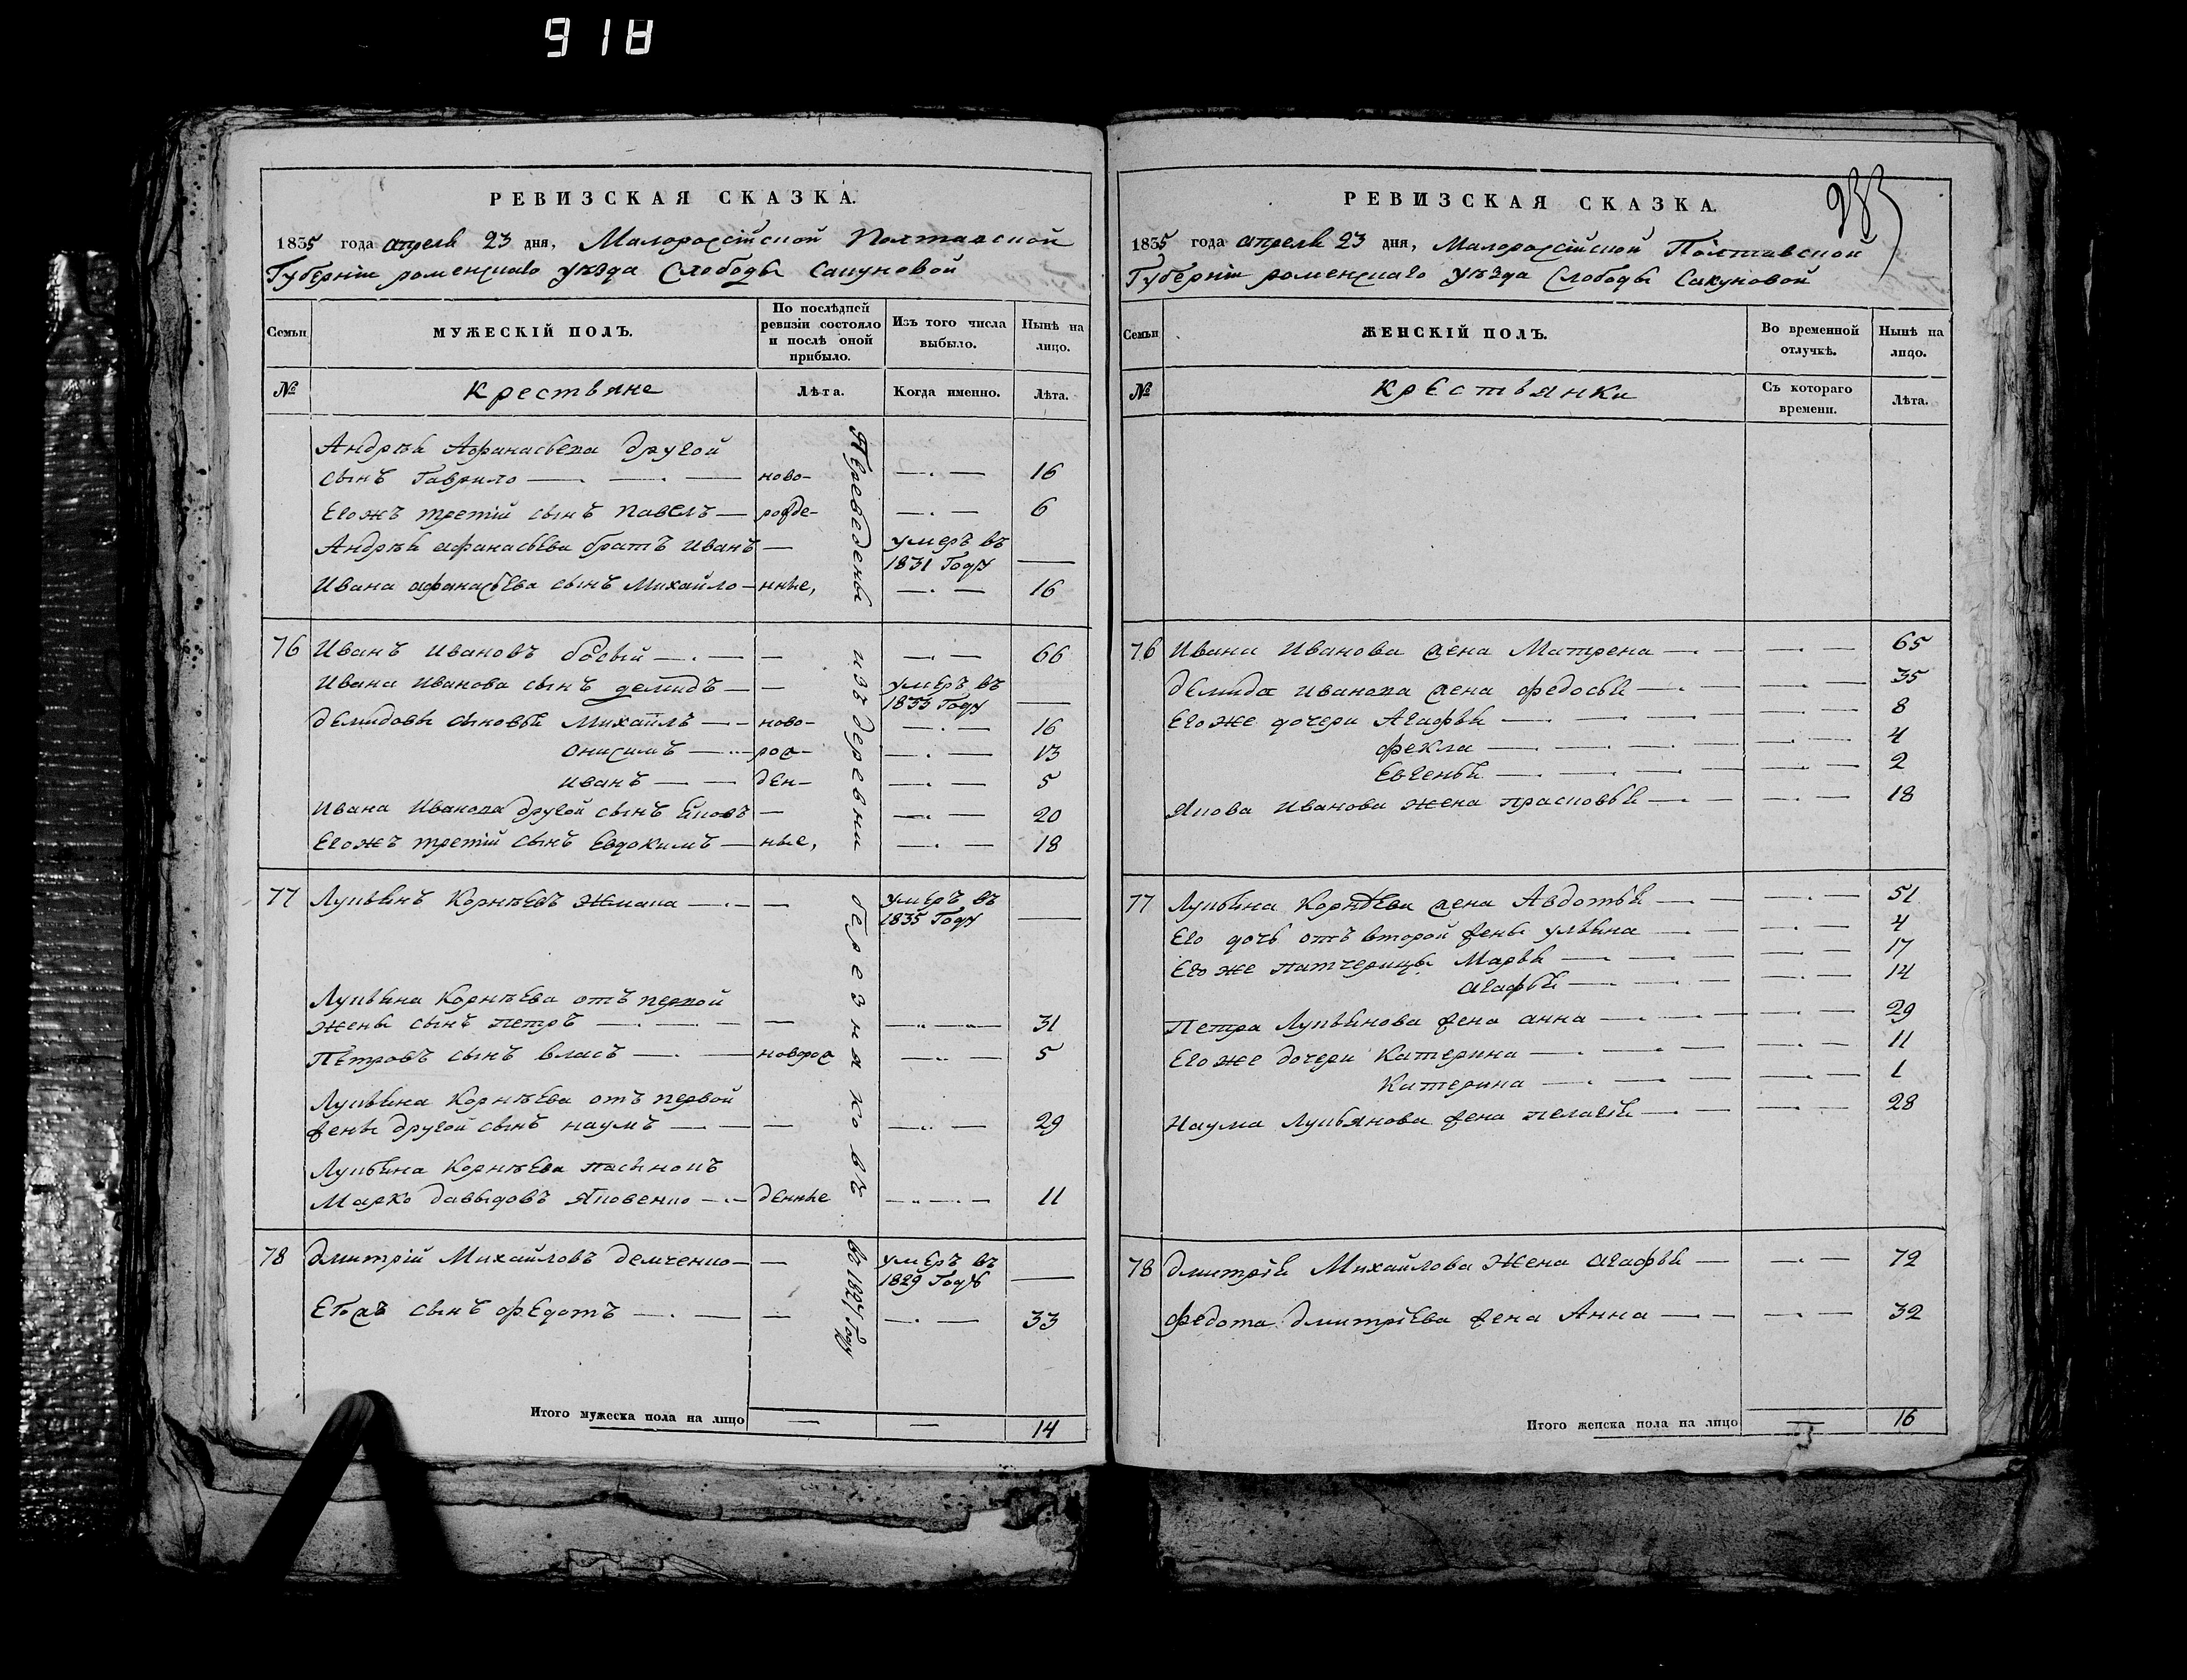 918
РЕВИЗСКАЯ СКАЗКА.
1835 года апреля 23 дня, Малоросійской Полтавской
Губерніи роменскаго уѣзда Слободы Сакуновой
Семьи
МУЖЕСКІЙ ПОЛЪ.
По послѣдней ревизіи состояло и послѣ оной прибыло.
Изъ того числа выбыло.
Нынѣ на лицо.
№ Крестьяне Лѣта. Когда именно. Лѣта.
Андрѣя Афанасьева другой
сынъ Гаврило — ново- — 16
Егожъ третій сынъ павелъ — рожде- — 6
Андрѣя афанасьева братъ Иванъ — умеръ въ
1831 Году —
Ивана афанасьева сынъ Михайло — нные, — 16
76 Иванъ Ивановъ — — 66
Ивана Иванова сынъ демидъ — — умеръ въ
1833 Году —
демидовы сыновья Михаилъ — ново- — 16
Онисимъ — рож- — 13
иванъ — ден- — 5
Ивана Иванова другой сынъ Яковъ — — 20
Егожъ третій сынъ Евдокимъ — ные, — 18
77 Лукьянъ Корнѣевъ Жмака — — умеръ въ
1835 Году —
Лукьяна Корнѣева отъ первой
жены сынъ петръ — — — 31
Петровъ сынъ власъ — новорож — 5
Лукьяна Корнѣева отъ первой
жены другой сынъ наумъ — — — 29
Лукьяна Корнѣева пасынокъ
Марко давыдовъ Яковенко — денные — 11
78 Дмитрій Михайловъ демченко — — умеръ въ
1829 Году —
Егожъ сынъ федотъ — — — 33
Переведены изъ деревни березняковъ въ 1827 Году
Итого мужеска пола на лицо — — 14
РЕВИЗСКАЯ СКАЗКА.
1835 года апреля 23 дня, Малоросійской Полтавской
Губерніи роменскаго уѣзда Слободы Сакуновой
Семьи
ЖЕНСКІЙ ПОЛЪ.
Во временной отлучкѣ.
Нынѣ на лицо.
№ крестьянки Съ котораго времени. Лѣта.
76 Ивана Иванова жена Матрена — — 65
демида иванова жена федосья — — 35
Его же дочери Агафья — — 8
фекла — — 4
Евгенья — — 2
Якова Иванова жена прасковья — — 18
77 Лукьяна Корнѣева жена Авдотья — — 51
Его дочь отъ второй жены ульяна — — 4
Его же патчерицы Марья — — 17
агафья — — 14
Петра Лукьянова жена анна — — 29
Его же дочери Катерина — — 11
Катерина — — 1
Наума Лукьянова жена пелагея — — 28
78 дмитрія Михайлова жена агафья — — 72
федота дмитріева жена Анна — — 32
Итого женска пола на лицо — 16